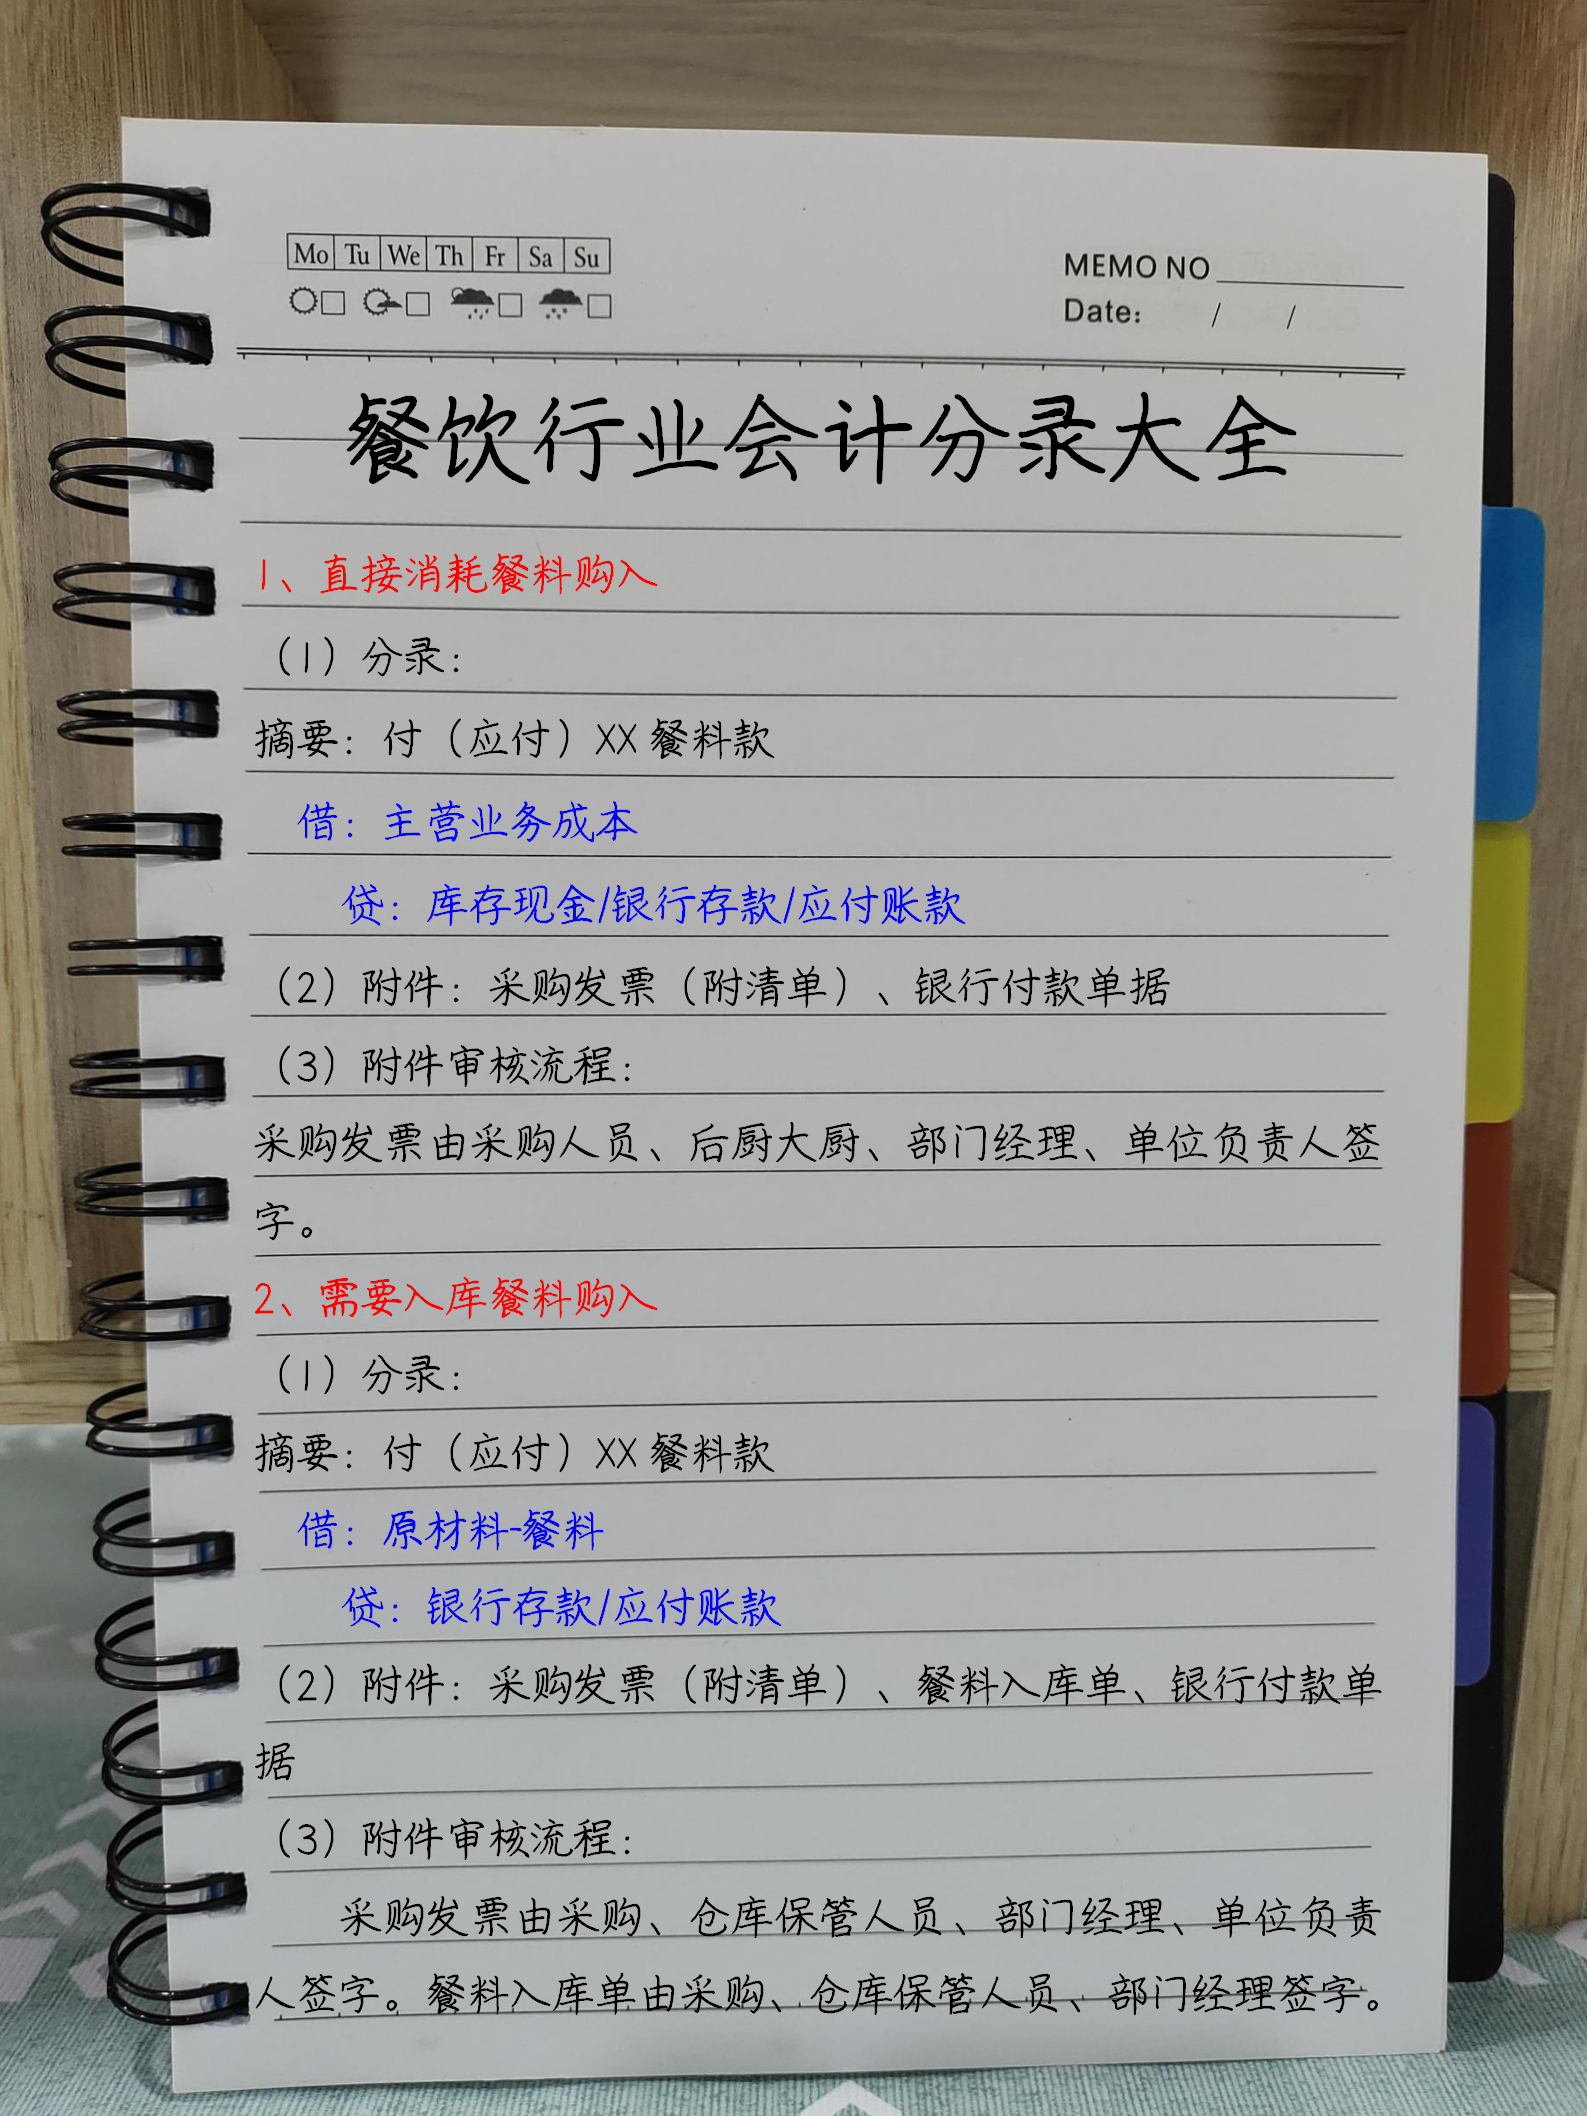 Mo Tu We Th Fr Sa Su
MEMO NO
Date: / /
餐饮行业会计分录大全
1、直接消耗餐料购入
（1）分录：
摘要：付（应付）XX 餐料款
借：主营业务成本
贷：库存现金/银行存款/应付账款
（2）附件：采购发票（附清单）、银行付款单据
（3）附件审核流程：
采购发票由采购人员、后厨大厨、部门经理、单位负责人签
字。
2、需要入库餐料购入
（1）分录：
摘要：付（应付）XX 餐料款
借：原材料-餐料
贷：银行存款/应付账款
（2）附件：采购发票（附清单）、餐料入库单、银行付款单
据
（3）附件审核流程：
采购发票由采购、仓库保管人员、部门经理、单位负责
人签字。餐料入库单由采购、仓库保管人员、部门经理签字。